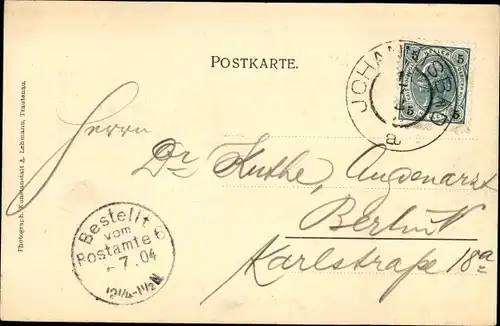 POSTKARTE.
5 5
5 5
JOHANNISBAD
a
Herrn
Dr. Kuthe, Augenarzt
Berlin N
Karlstraße 18a
Bestellt
vom
Postamte 6
7.04
12¼-1½N
Photograph. Kunstanstalt A. Lehmann, Trautenau.